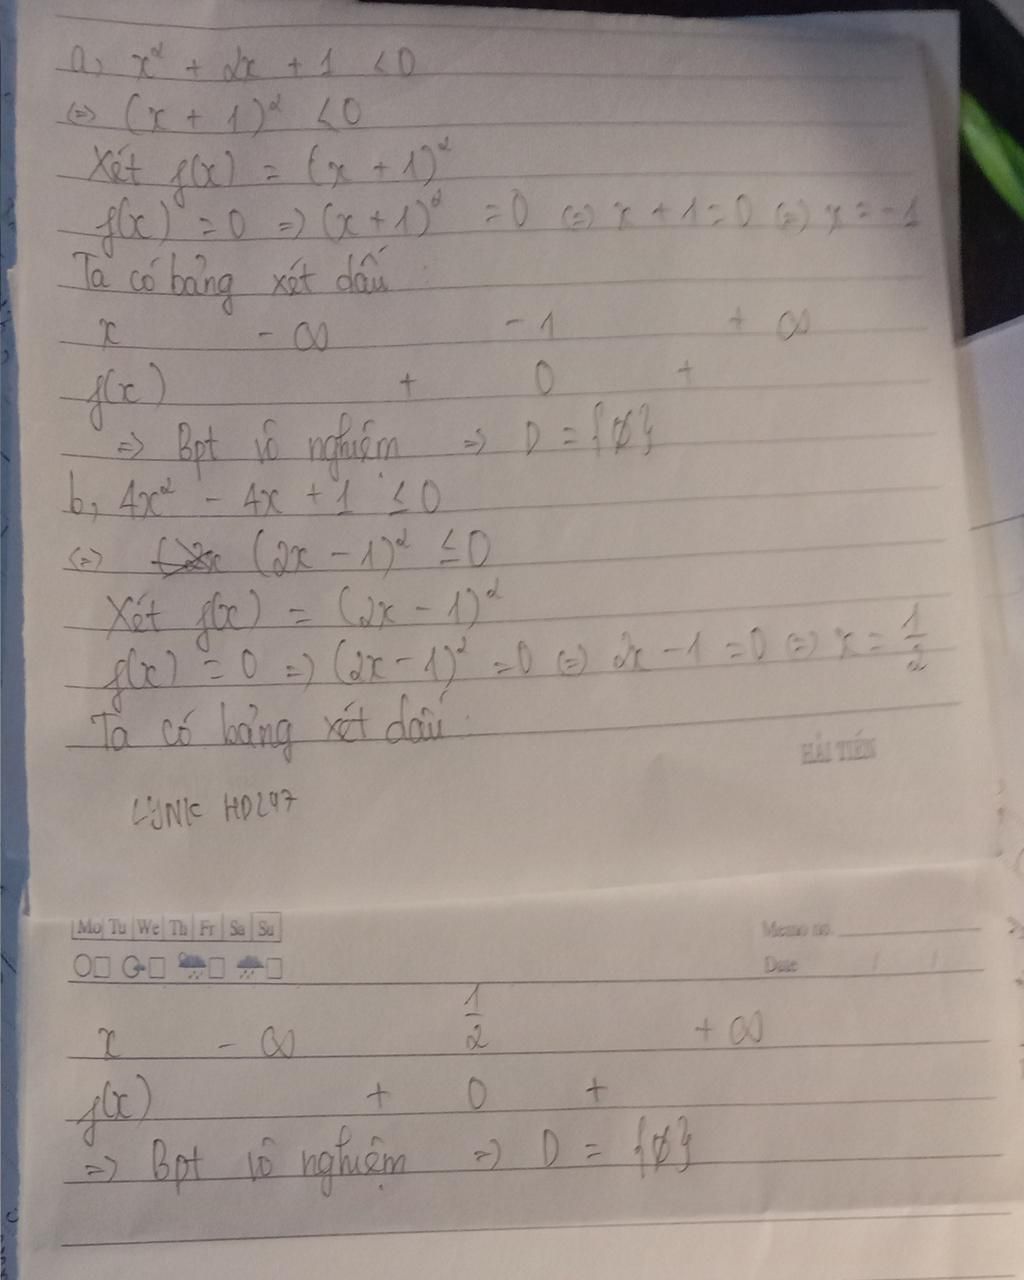 a, x² + 2x + 1 < 0
⇔ (x + 1)² < 0
Xét f(x) = (x + 1)²
f(x) = 0 ⇒ (x + 1)² = 0 ⇔ x + 1 = 0 ⇔ x = -1
Ta có bảng xét dấu :
x - ∞ - 1 + ∞
f(x) + 0 +
⇒ Bpt vô nghiệm ⇒ D = {∅}
b, 4x² - 4x + 1 ≤ 0
⇔ (2x - 1)² ≤ 0
Xét f(x) = (2x - 1)²
f(x) = 0 ⇒ (2x - 1)² = 0 ⇔ 2x - 1 = 0 ⇔ x = 1/2
Ta có bảng xét dấu :
HẢI TIẾN
LYNK HD297
Mo Tu We Th Fr Sa Su
Memo no.
Date / /
x - ∞ 1/2 + ∞
f(x) + 0 +
⇒ Bpt vô nghiệm ⇒ D = {∅}